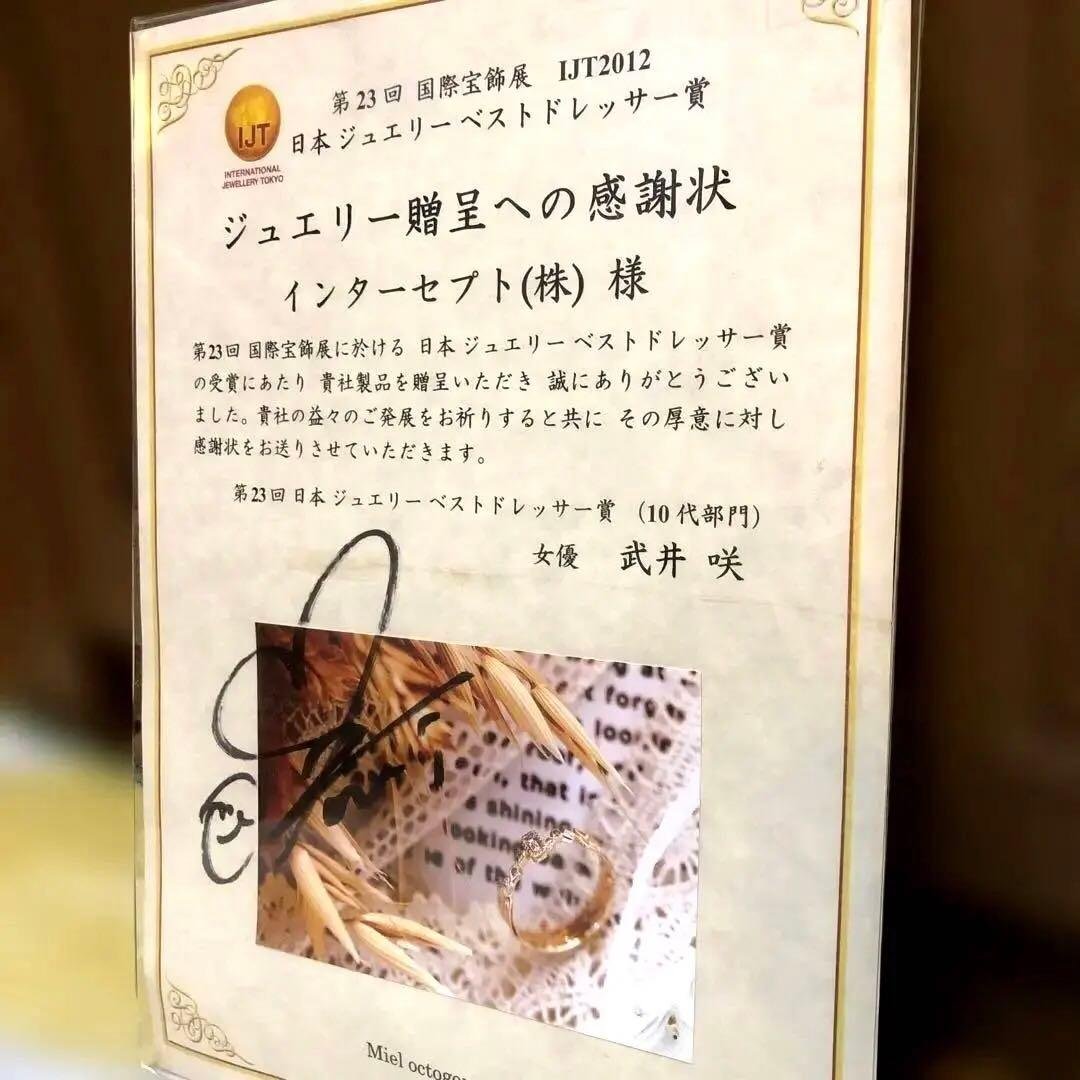 第23回 国際宝飾展 IJT2012
日本ジュエリーベストドレッサー賞
IJT
INTERNATIONAL
JEWELLERY TOKYO
ジュエリー贈呈への感謝状
インターセプト(株) 様
第23回 国際宝飾展に於ける 日本ジュエリーベストドレッサー賞
の受賞にあたり 貴社製品を贈呈いただき 誠にありがとうござい
ました。貴社の益々のご発展をお祈りすると共に その厚意に対し
感謝状をお送りさせていただきます。
第23回 日本ジュエリーベストドレッサー賞 (10代部門)
女優 武井 咲
at
forg
that
shining
looking
of the
Miel